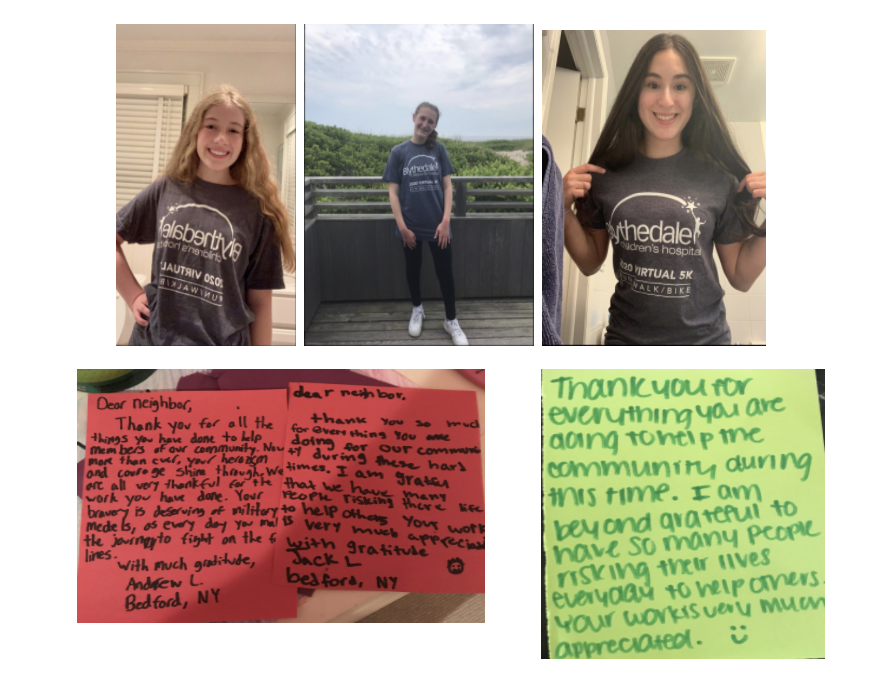 Blythedale
children's
2020 VIRTUAL
RUN/WALK
Blythedale
2020 VIRTUAL 5K
Blythedale
children's hospital
2020 VIRTUAL 5K
WALK/BIKE
Dear neighbor,
Thank you for all the
things you have done to help
members of our community. Now
more than ever, your heroism
and courage shine through. We
are all very thankful for the
work you have done. Your
bravery is deserving of military
medels, as every day you
the journey to fight on the f
lines.
With much gratitude,
Andrew L.
Bedford, NY
dear neighbor,
thank you so much
for everything you are
doing for our communi
ty during these hard
times. I am grateful
that we have many
people risking there life
to help others your work
is very much appreciated
with gratitude
Jack L
bedford, NY
Thank you for
everything you are
doing to help the
community during
this time. I am
beyond grateful to
have so many people
risking their lives
everyday to help others.
your work is very much
appreciated. :)